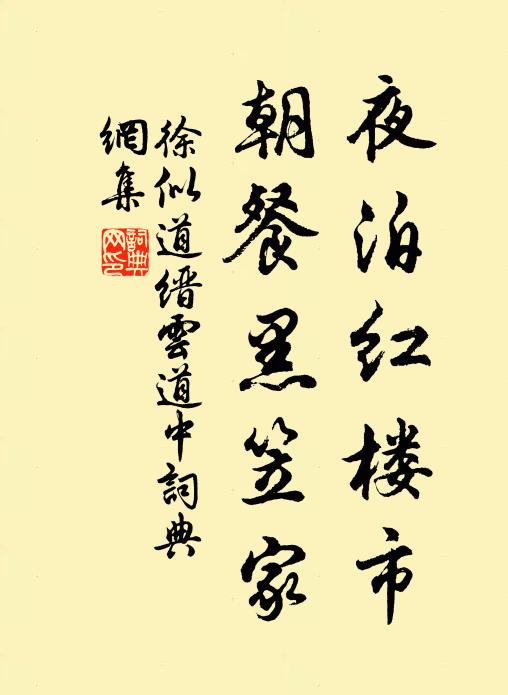 夜泊红楼市
朝餐黑笠家
徐似道缙雲道中詞典
網集
詞典网印